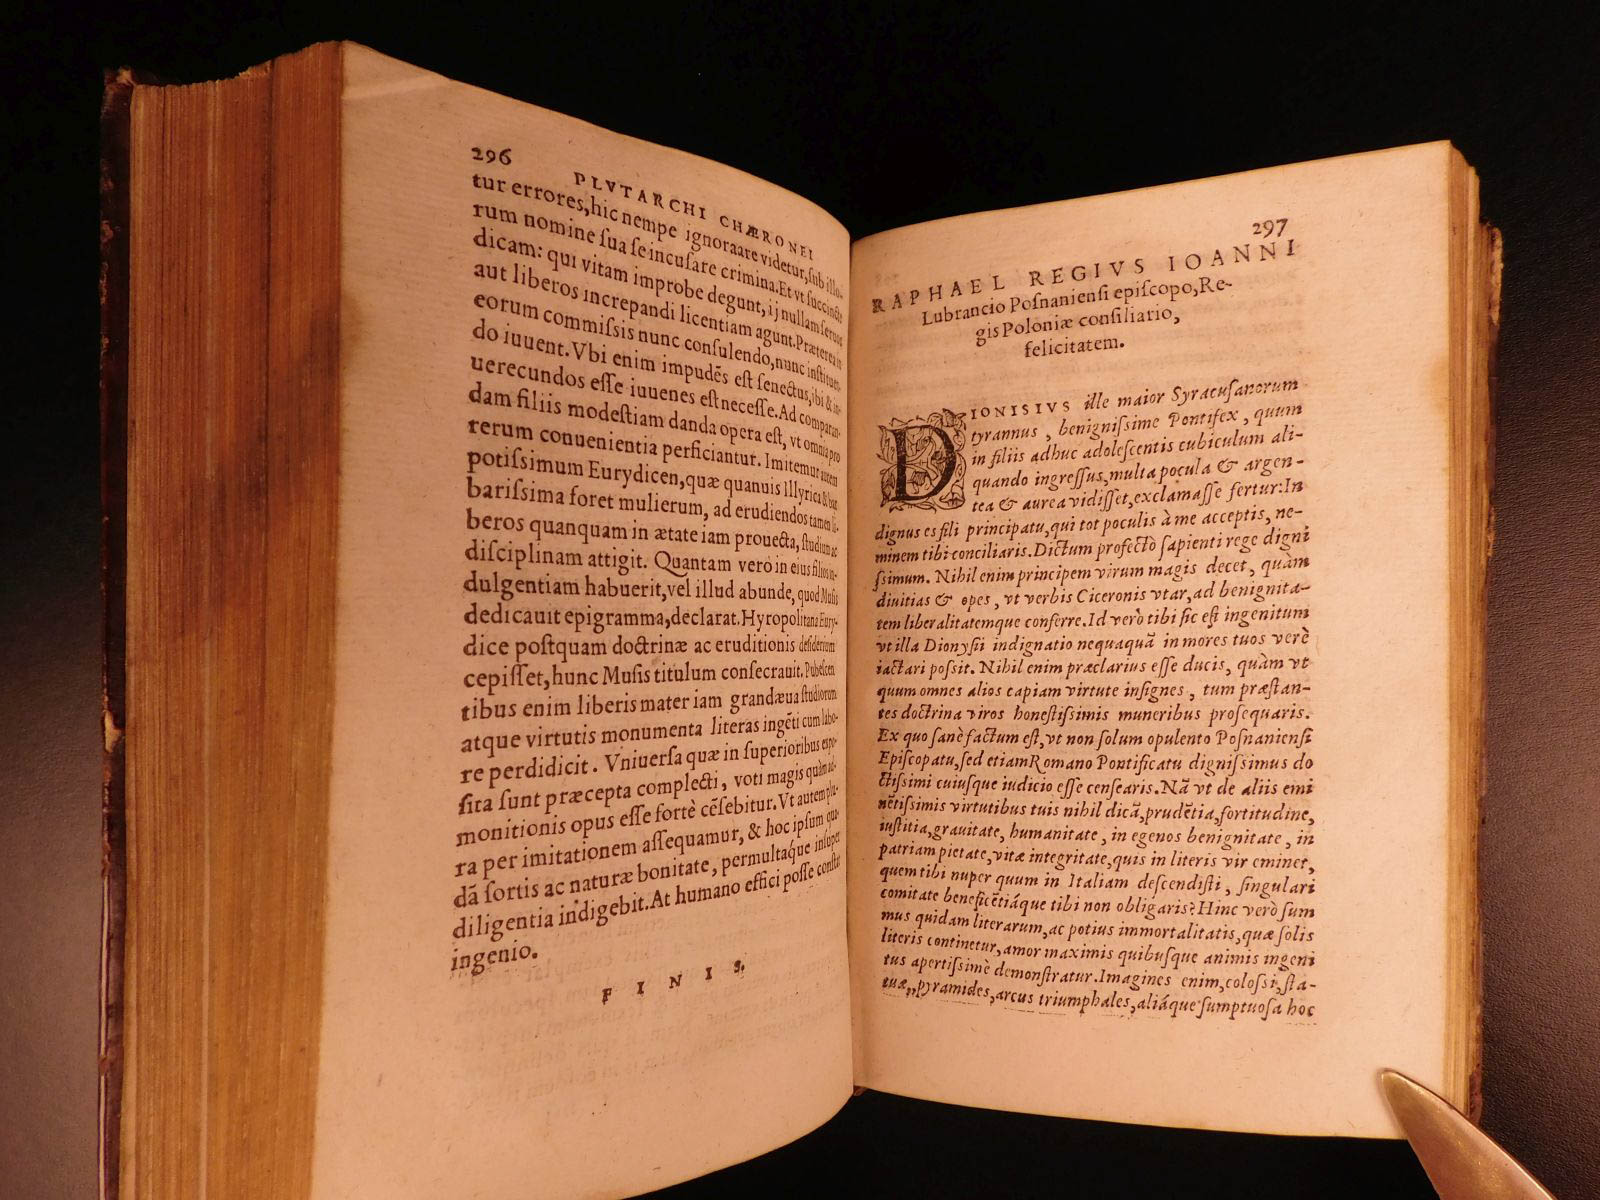 296
PLVTARCHI CHÆRONEI
tur errores, hic nempe ignoraare videtur, sub illo-
rum nomine sua se incusare crimina. Et vt succincte
dicam: qui vitam improbe degunt, ij nullam seruos
aut liberos increpandi licentiam agunt. Præterea in
eorum commissis nunc consulendo, nunc instituen-
do iuuent. Vbi enim impudēs est senectus, ibi & in-
uerecundos esse iuuenes est necesse. Ad comparan-
dam filiis modestiam danda opera est, vt omnia pro
rerum conuenientia perficiantur. Imitemur autem
potissimum Eurydicen, quæ quanuis Illyrica & bar
barissima foret mulierum, ad erudiendos tamen li-
beros quanquam in ætate iam prouecta, studium ac
disciplinam attigit. Quantam verò in eius filios in-
dulgentiam habuerit, vel illud abunde, quod Musis
dedicauit epigramma, declarat. Hyropolitana Eury-
dice postquam doctrinæ ac eruditionis desiderium
cepisset, hunc Musis titulum consecrauit. Pubescen
tibus enim liberis mater iam grandæua studiorum
atque virtutis monumenta literas ingēti cum labo-
re perdidicit. Vniuersa quæ in superioribus expo-
sita sunt præcepta complecti, voti magis quàm ad-
monitionis opus esse fortè cēsebitur. Vt autem plu-
ra per imitationem assequamur, & hoc ipsum quo
dā sortis ac naturæ bonitate, permultáque insuper
diligentia indigebit. At humano effici posse constat
ingenio.
FINIS.
297
RAPHAEL REGIVS IOANNI
Lubrancio Posnaniensi episcopo, Re-
gis Poloniæ consiliario,
felicitatem.
DIONISIVS ille maior Syracusanorum
tyrannus, benignissime Pontifex, quum
in filiis adhuc adolescentis cubiculum ali-
quando ingressus, multa pocula & argen-
tea & aurea vidisset, exclamasse fertur: In
dignus es fili principatu, qui tot poculis à me acceptis, ne-
minem tibi conciliaris. Dictum profectò sapienti rege digni
ssimum. Nihil enim principem virum magis decet, quàm
diuitias & opes, vt verbis Ciceronis vtar, ad benignita-
tem liberalitatemque conferre. Id verò tibi sic est ingenitum
vt illa Dionysii indignatio nequaquā in mores tuos verè
iactari possit. Nihil enim præclarius esse ducis, quàm vt
quum omnes alios capiam virtute insignes, tum præstan-
tes doctrina viros honestissimis muneribus prosequaris.
Ex quo sanè factum est, vt non solum opulento Posnaniensi
Episcopatu, sed etiam Romano Pontificatu dignissimus do
ctissimi cuiusque iudicio esse censearis. Nā vt de aliis emi
nētissimis virtutibus tuis nihil dicā, prudētia, fortitudine,
iustitia, grauitate, humanitate, in egenos benignitate, in
patriam pietate, vitæ integritate, quis in literis vir eminet,
quem tibi nuper quum in Italiam descendisti, singulari
comitate beneficētiáque tibi non obligaris? Hinc verò sum
mus quidam literarum, ac potius immortalitatis, quæ solis
literis continetur, amor maximis quibusque animis ingeni
tus apertissimè demonstratur. Imagines enim, colossi, sta-
tuæ,, pyramides, arcus triumphales, aliáque sumptuosa hoc